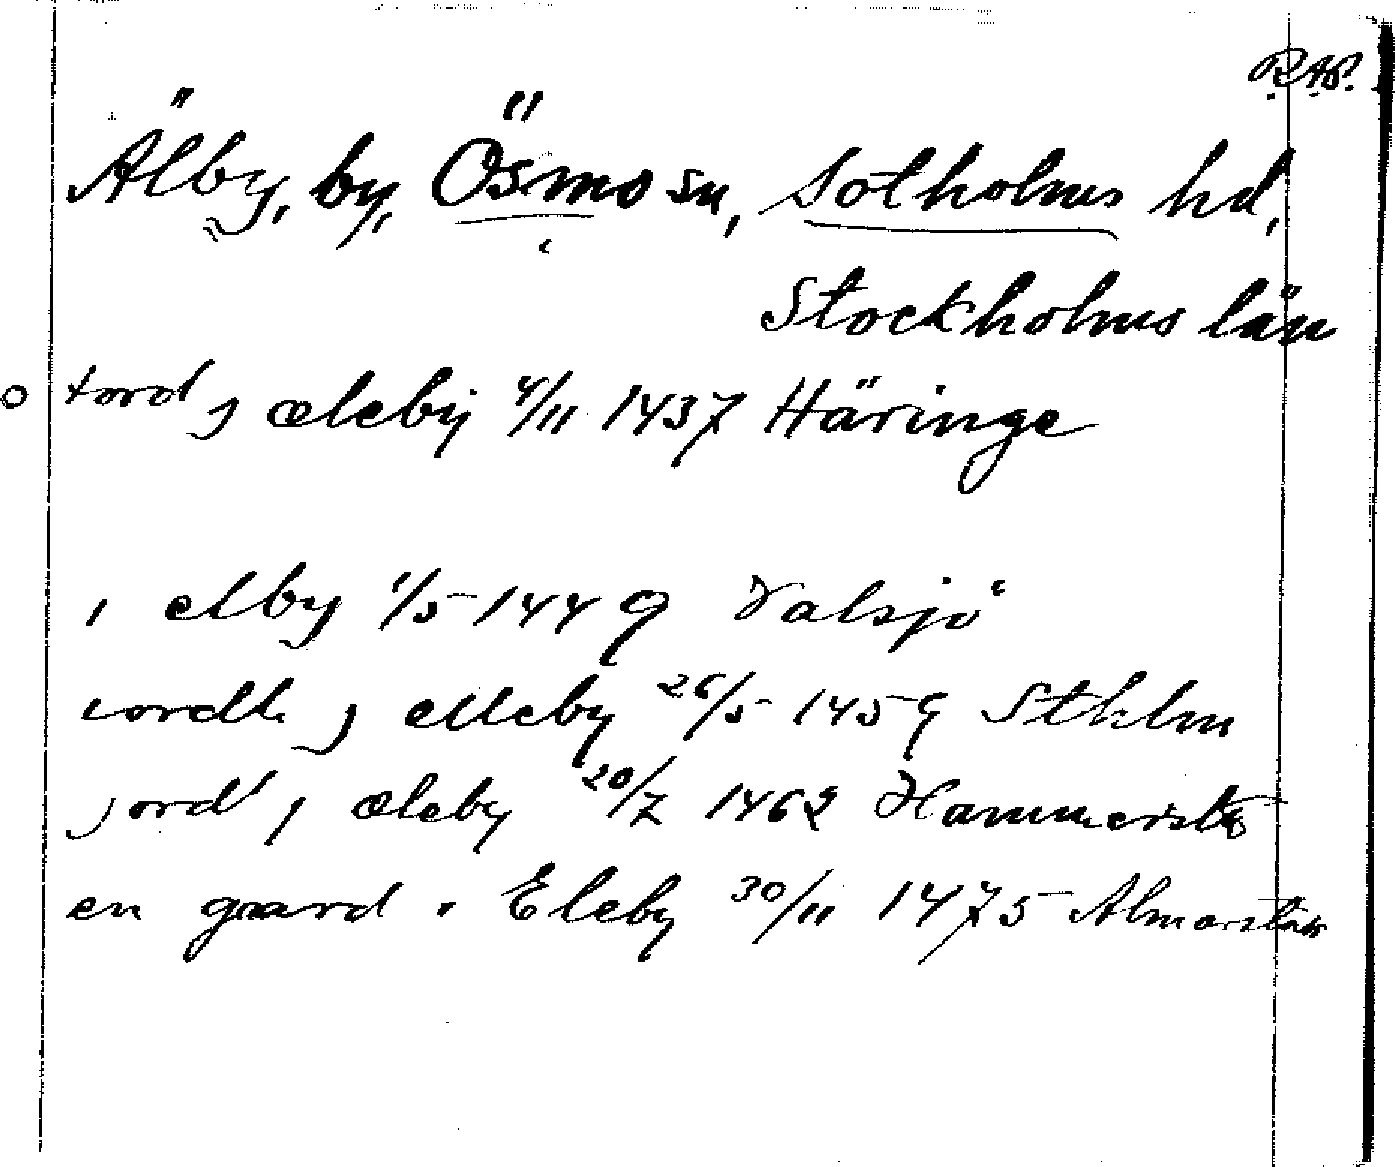 R.A.P.
Älby, by, Ösmo sn, Sotholms hd,
Stockholms län
o tord j æleby 4/11 1437 Häringe
i elby 1/5 1449 Valsjö
j elleby 26/5 1459 Sthlm
jord j æleby 20/7 1462 Hammersta
en gaard i Eleby 30/11 1475 Almarstæk